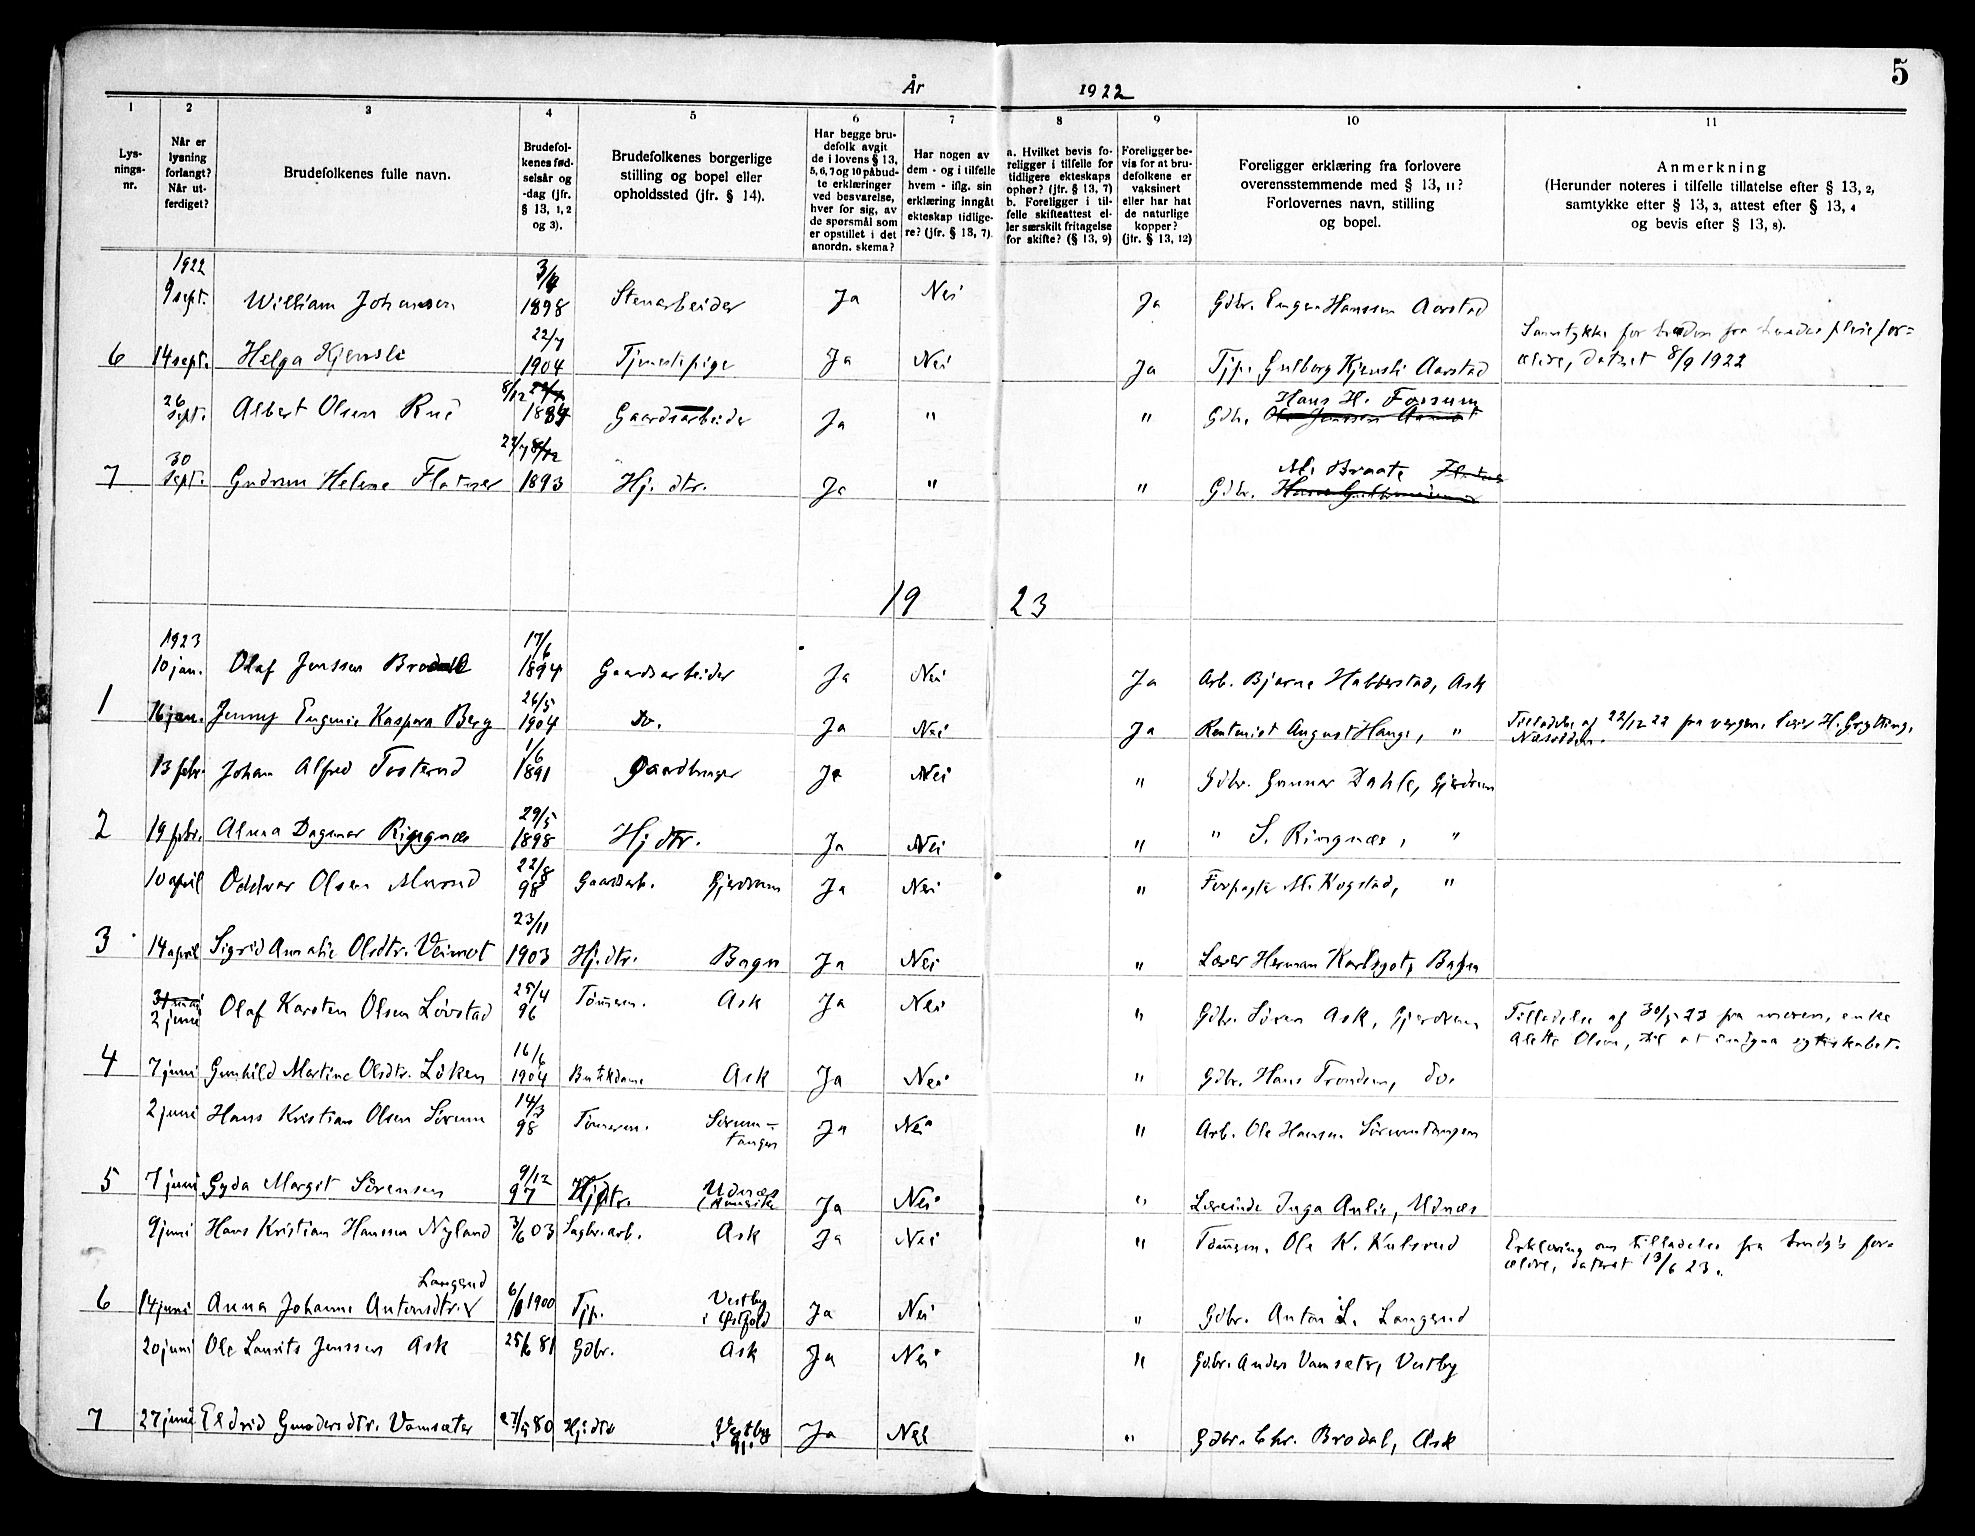 5
År 1922
1 2 3 4 5 6 7 8 9 10 11
Lys-
nings-
nr.
Når er
lysning
forlangt?
Når ut-
ferdiget?
Brudefolkenes fulle navn.
Brudefol-
kenes fød-
selsår og
-dag (jfr.
§ 13, 1, 2
og 3).
Brudefolkenes borgerlige
stilling og bopel eller
opholdssted (jfr. § 14).
Har begge bru-
defolk avgit
de i lovens § 13,
5, 6, 7 og 10 påbud-
te erklæringer
ved besvarelse,
hver for sig, av
de spørsmål som
er opstillet i det
anordn. skema?
Har nogen av
dem - og i tilfelle
hvem - iflg. sin
erklæring inngåt
ekteskap tidlige-
re? (jfr. § 13, 7).
a. Hvilket bevis fo-
religger i tilfelle for
tidligere ekteskaps
ophør? (jfr. § 13, 7)
b. Foreligger i til-
felle skifteattest el-
ler særskilt fritagelse
for skifte? (§ 13, 9)
Foreligger be-
vis for at bru-
defolkene er
vaksinert
eller har hat
de naturlige
kopper?
(jfr. § 13, 12)
Foreligger erklæring fra forlovere
overensstemmende med § 13, 11?
Forlovernes navn, stilling
og bopel.
Anmerkning
(Herunder noteres i tilfelle tillatelse efter § 13, 2,
samtykke efter § 13, 3, attest efter § 13, 4
og bevis efter § 13, 8).
1922
9 sept. William Johansen 1898 Stenarbeider Ja Nei Ja Gdbr. Hanssen Aarstad
6 14 sept. Helga Kjensli 22/7 1904 Tjenestepige Ja Nei Ja Tjp. Gulborg Kjensli Aarstad
Samtykke for bruden fra hendes pleiefor-
ældre, datert 8/9 1922
26 sept. Albert Olsen Rud 8/12 1884 Gaardsarbeider Ja " " Gdbr. Hans H. Fossum
7 30 sept. Gudrun Helene Flatner 1893 Hj. dtr. Ja " " Gdbr. M. Braate
1923
1923
10 jan. Olaf Jenssen Brodal 17/6 1894 Gaardsarbeider Ja Nei Ja Arb. Bjarne Habberstad, Ask
1 16 jan. Jenny Eugenie Kaspera Berg 26/5 1904 Do. Ja Nei Ja Rentenist August Hauge, "
Tilladelse af 22/12 22 fra vergen, lærer H. Grytting,
Næsodden.
13 febr. Johan Alfred Tosterud 1/6 1891 Gaardbruger Ja Nei " Gdbr. Gunnar Dahle, Gjerdrum
2 19 febr. Alma Dagmar Ringnæs 29/5 1898 Hj dtr. Ja Nei " " S. Ringnæs, "
10 april Oddvar Olsen 22/8 98 Gaardarb. Gjerdrum Ja Nei " Forpagter M. Kogstad, "
3 14 april Sigrid Amalie Olsdtr. Veimot 23/11 1903 Hj. dtr. Bagn Ja Nei " Lærer Herman Karlsgot, Bagn
31 mai
2 juni Olaf Karsten Olsen Lövstad 25/4 96 Tömmerm. Ask Ja Nei " Gdbr. Sören Ask, Gjerdrum
Tilladelse af 30/5 23 fra moren, enke
Alette Olsen, til at indgaa egteskabet.
4 7 juni Gunhild Martine Olsdtr. Löken 16/6 1904 Butikdame Ask Ja Nei " Gdbr. Hans Tronden, do.
2 juni Hans Kristian Olsen Sörum 14/3 98 Tömmerm. Sörum-
tangen Ja Nei " Arb. Ole Hansen Sörumtangen
5 7 juni Gyda Margit Sörensen 9/12 97 Hjdtr. Udnæs
(Amerika Ja Nei " Lærerinde Inga Aulie, Udnæs
9 juni Hans Kristian Hanssen Nyland 3/6 03 Sagbr. arb. Ask Ja Nei " Tömmerm. Ole K. Kulsrud
Erklæring om tilladelse fra brudg.s for-
ældre, datert 13/6 23.
6 14 juni Anna Johanne Antonsdtr. Langerud 1900 Tjp. Vestby
i Østfold Ja Nei " Gdbr. Anton L. Langerud
20 juni Ole Laurits Jenssen Ask 25/6 81 Gdbr. Ask Ja Nei " Gdbr. Anders Vamsæter, Vestby
7 27 juni Eldrid Gundersdtr. Vamsæter 80 Hj. dtr Vestby Ja Nei " Gdbr. Chr. Brodal, Ask